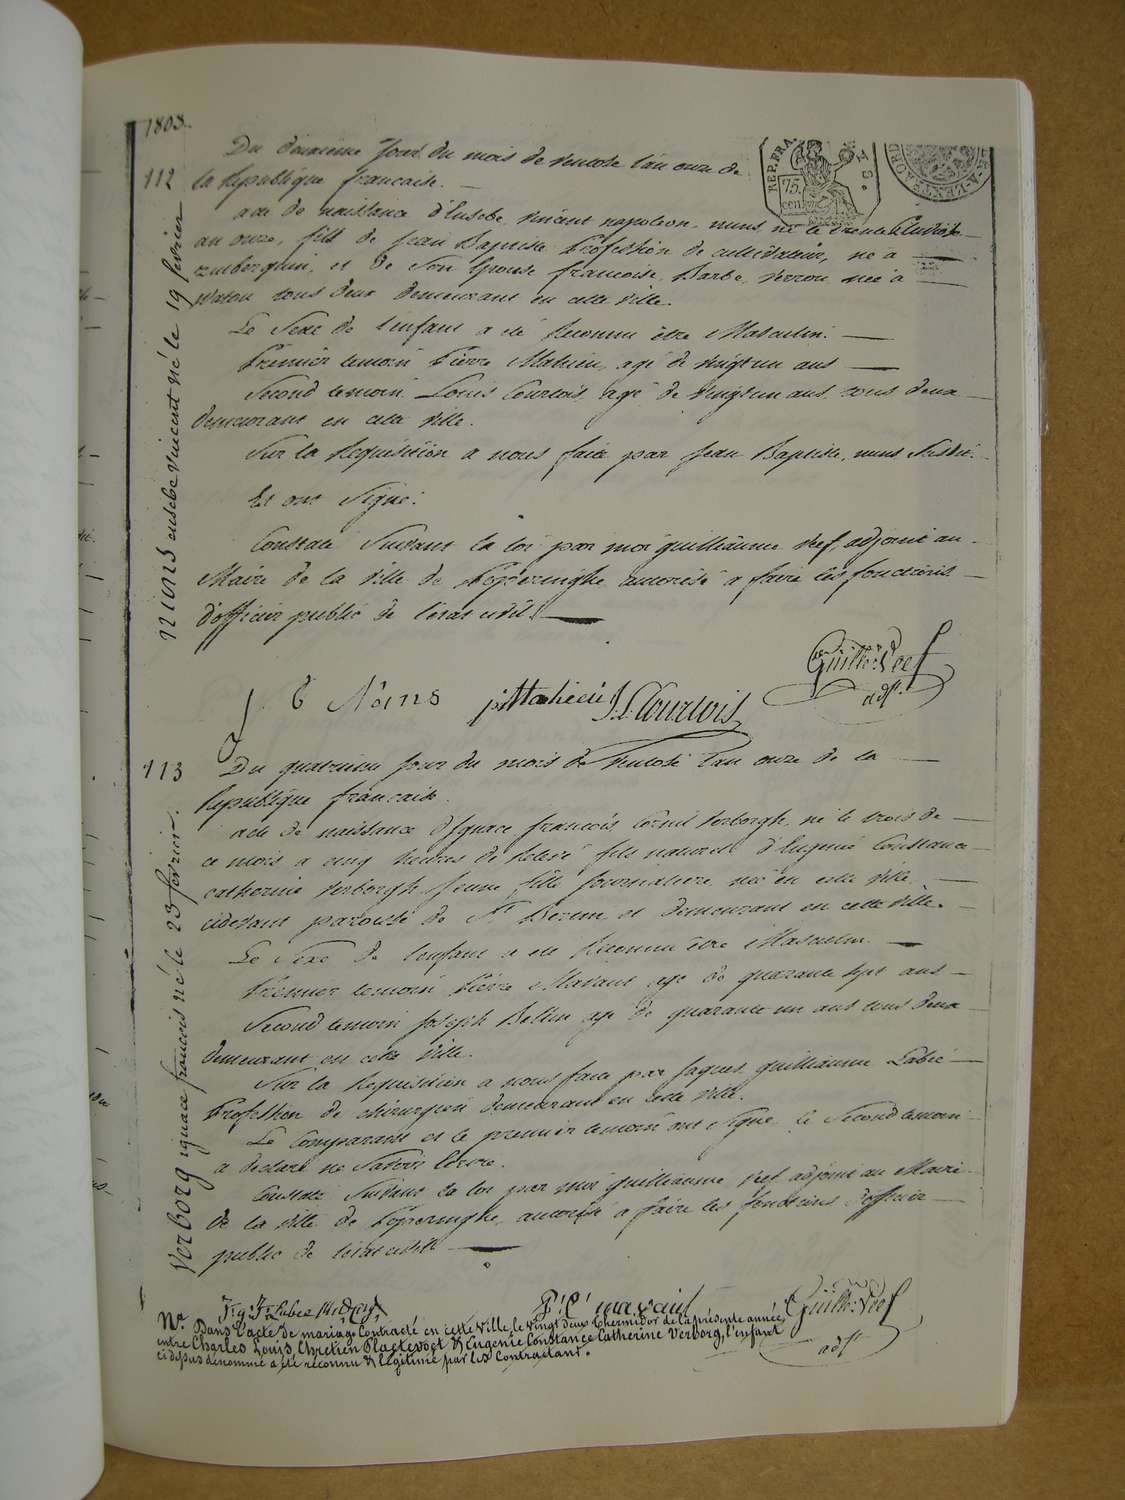 1803.
REP. FRA.
75.
cen
112
Du deuxième Jour du mois de ventose l'an onze de
la Republique francaise.
acte de naissance d'Eusebe vincent napoleon nuns, né le trente pluviose
an onze, fils de Jean Baptiste Profession de cultivateur, né à
et de Son Epouse francoise Barbe née à
Watou tous deux demeurant en cette ville.
Le Sexe de l'enfant a eté Reconnu être Masculin.
Premier temoin Pierre Mahieu, agé de vingt un ans
Second temoin Louis Courtois agé de vingt un ans tous deux
demeurant en cette ville.
Sur la Requisition a nous faite par Jean Baptiste nuns
Et ont Signé:
Constaté Suivant la loi par moi guilliaume veef, adjoint au
Maire de la ville de Poperinghe autorisé a faire les fonctions
d'officier public de l'etat civil.
Guill. Veef
adj.
J. B Nuns p: Mahieu J. L Courtois
113
Du quatrieme Jour du mois de Ventose l'an onze de la
Republique francaise.
acte de naissance d'Ignace francois Verborgh, né le trois de
ce mois a cinq heures de Relevé fils naturel d'Eugenie Constance
catherine Verborgh Jeune fille Journaliere née en cette ville
cidevant paroisse de St. Bertin et demeurant en cette ville.
Le Sexe de l'enfant a eté Reconnu être Masculin.
Premier temoin Pierre agé de quarante sept ans
Second temoin Joseph Bellin agé de quarante un ans tous deux
demeurant en cette ville.
Sur la Requisition a nous faite par Jaques guilliaume
Profession de chirurgien demeurant en cette ville.
Le Comparant et le premier temoin ont Signé le Second temoin
a declaré ne Savoir Ecrire.
Constaté Suivant la loi par moi guilliaume veef adjoint au Maire
de la ville de Poperinghe autorisé a faire les fonctions d'officier
public de l'etat civil
Guill. Veef
adjt
Na. Dans l'acte de mariage Contracté en cette ville, le vingt deux thermidor de la présente année,
entre Charles Louis, Chretien Plaetevoet & Eugenie Constance Catherine Verborg, l'enfant
ci dessus denommé a ete reconnu & légitimé par les Contractans.
nuns eusebe vincent né le 19 fevrier
Verborg ignace francois né le 23 fevrier.